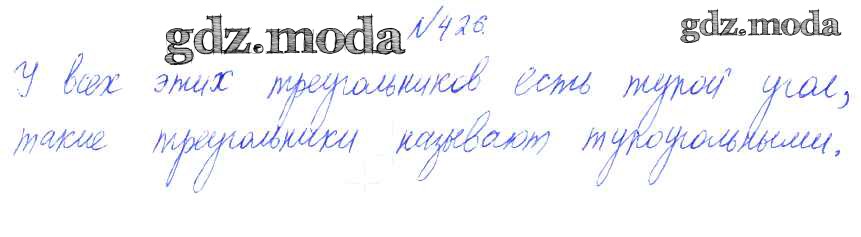 gdz.moda №426. gdz.moda
У всех этих треугольников есть тупой угол,
такие треугольники называют тупоугольными.